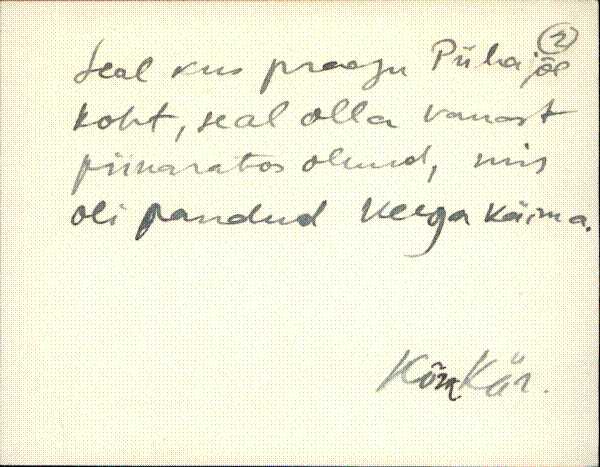 2
Seal kus praegu Pühajõe
koht, seal olla vanast
piinaratas olnud, mis
oli pandud veega käima.
Kõn Kär.